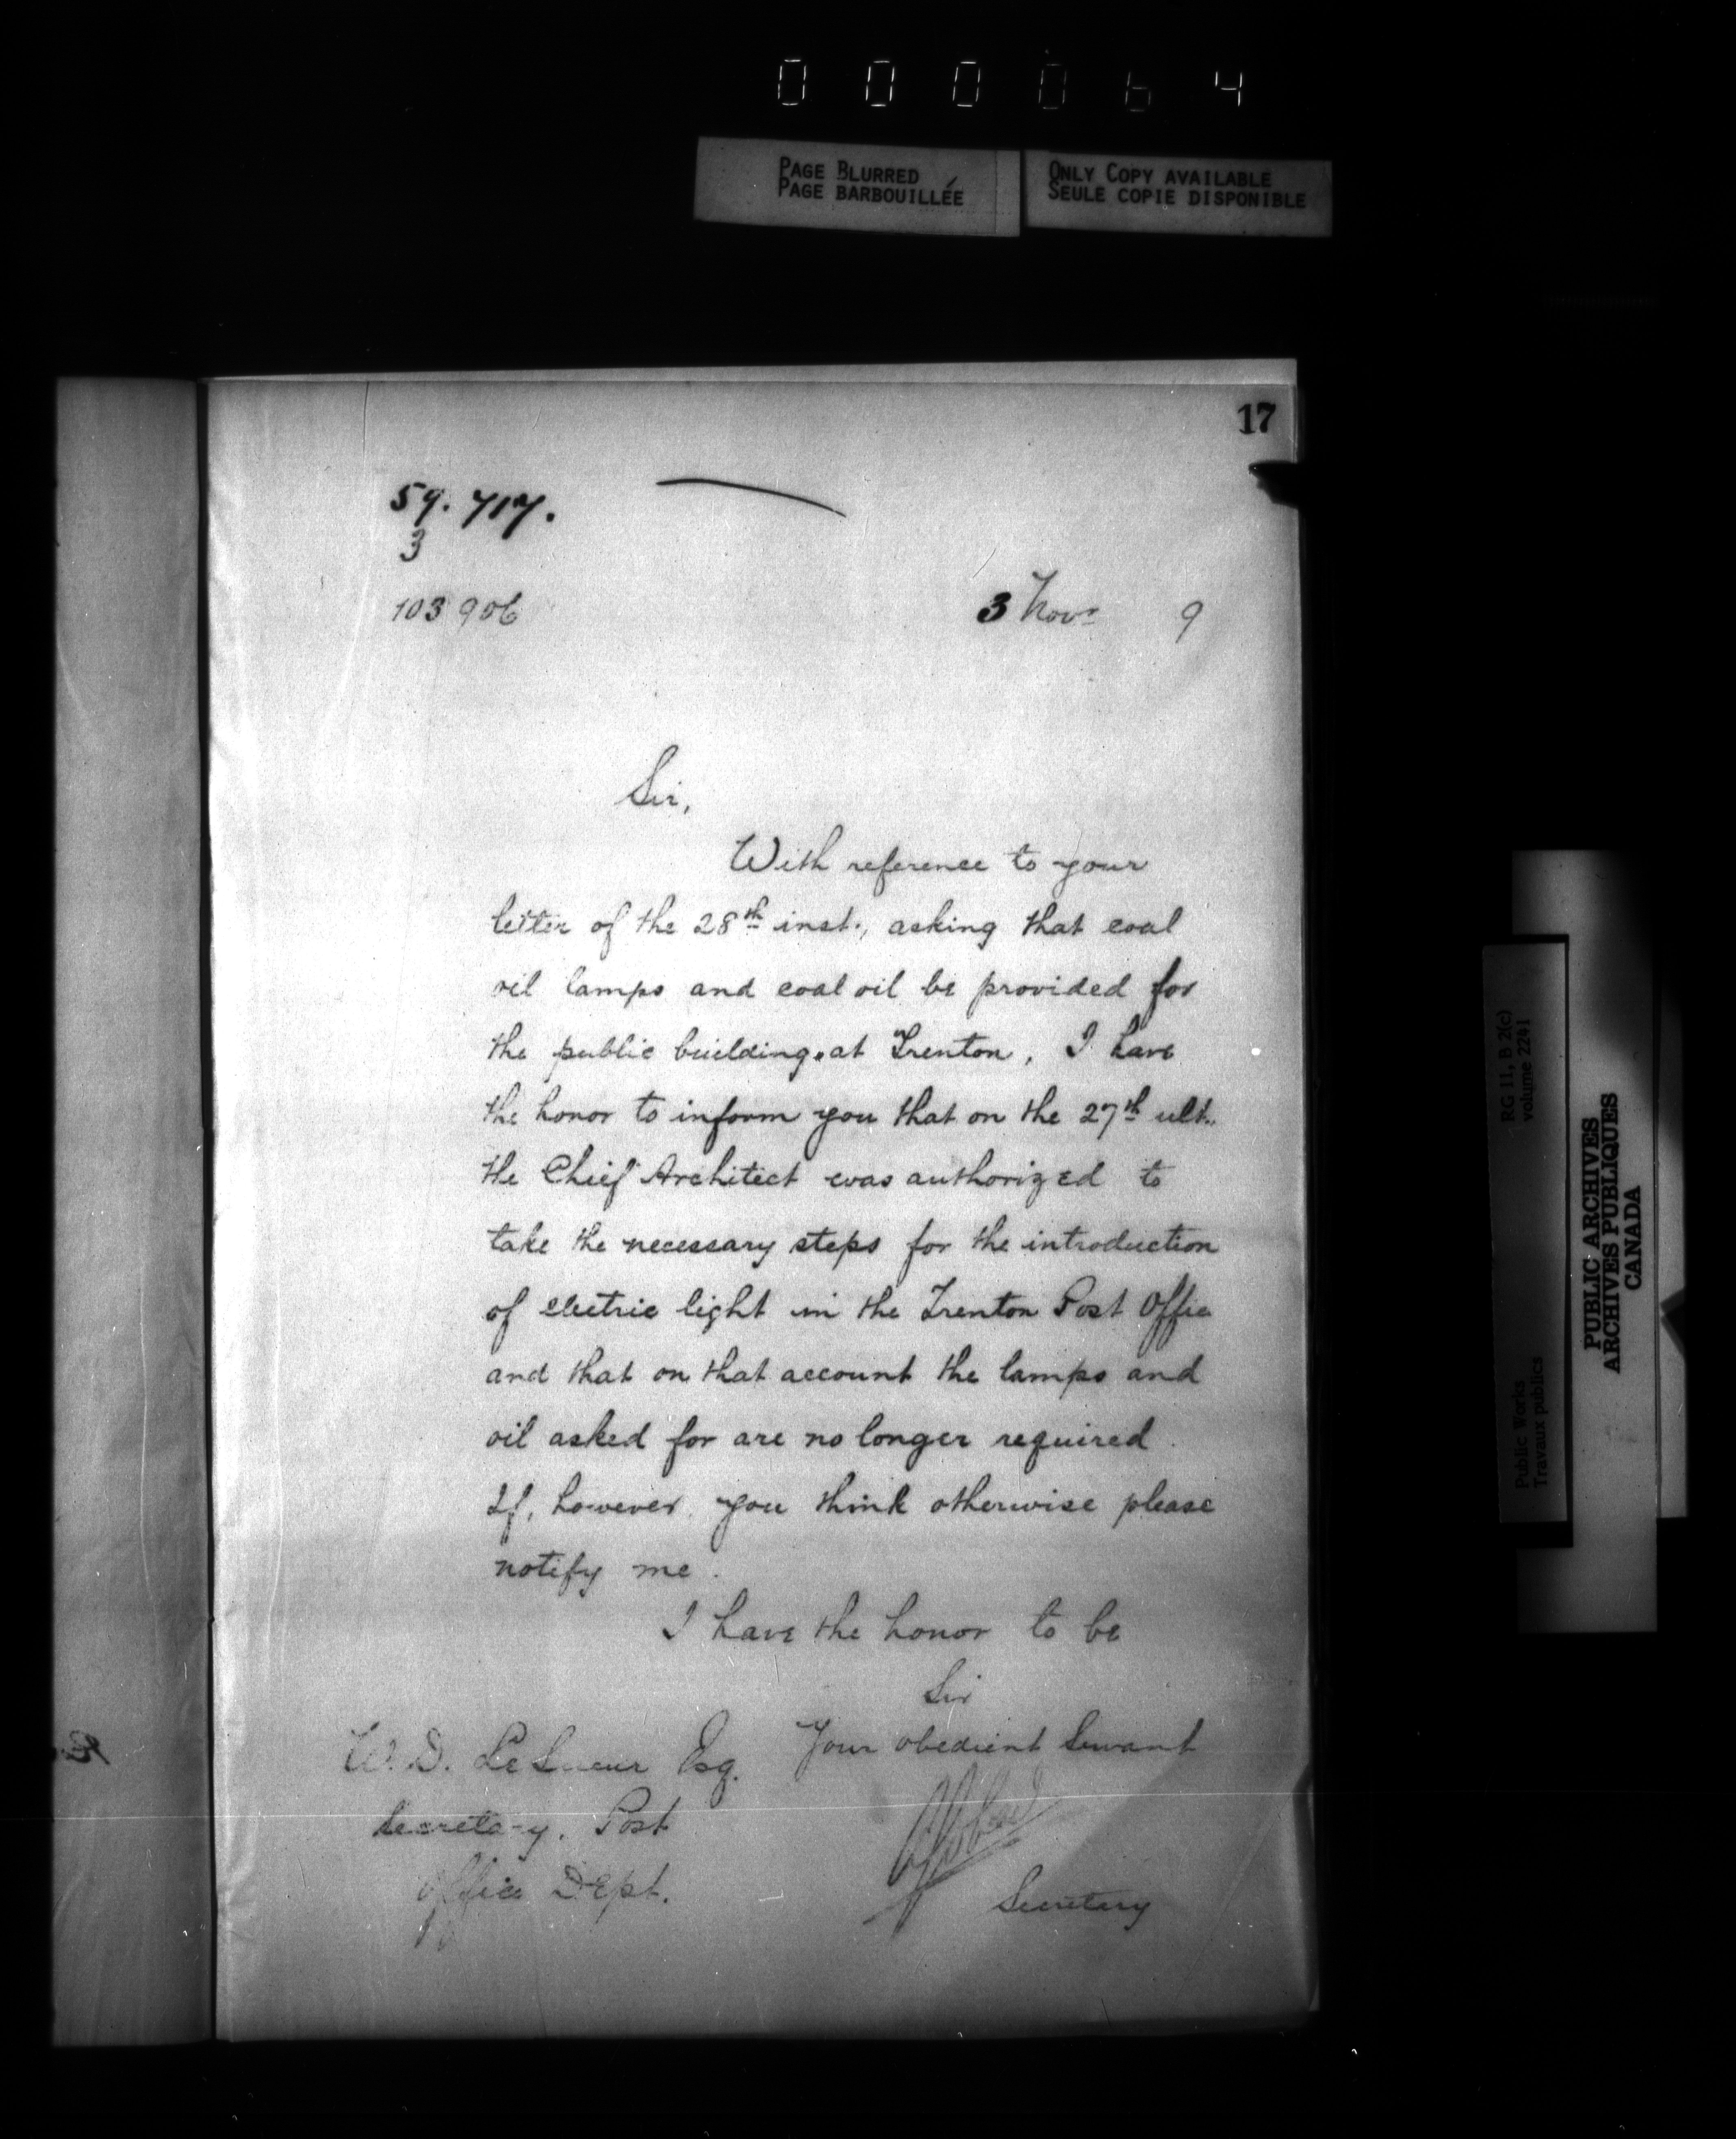 000064
PAGE BLURRED
PAGE BARBOUILLÉE
ONLY COPY AVAILABLE
SEULE COPIE DISPONIBLE
17
59.717.
3
103906
3 Nov^r 9
Sir,
With reference to your
letter of the 28th inst., asking that coal
oil lamps and coal oil be provided for
the public building at Trenton, I have
the honor to inform you that on the 27th ult.
the Chief Architect was authorized to
take the necessary steps for the introduction
of electric light in the Trenton Post Office
and that on that account the lamps and
oil asked for are no longer required.
If, however, you think otherwise please
notify me.
I have the honor to be
Sir
Your obedient Servant
W. D. LeSueur Esq.
Secretary, Post
Office Dept.
Secretary
RG 11, B 2(c)
volume 2241
Public Works
Travaux publics
PUBLIC ARCHIVES
ARCHIVES PUBLIQUES
CANADA